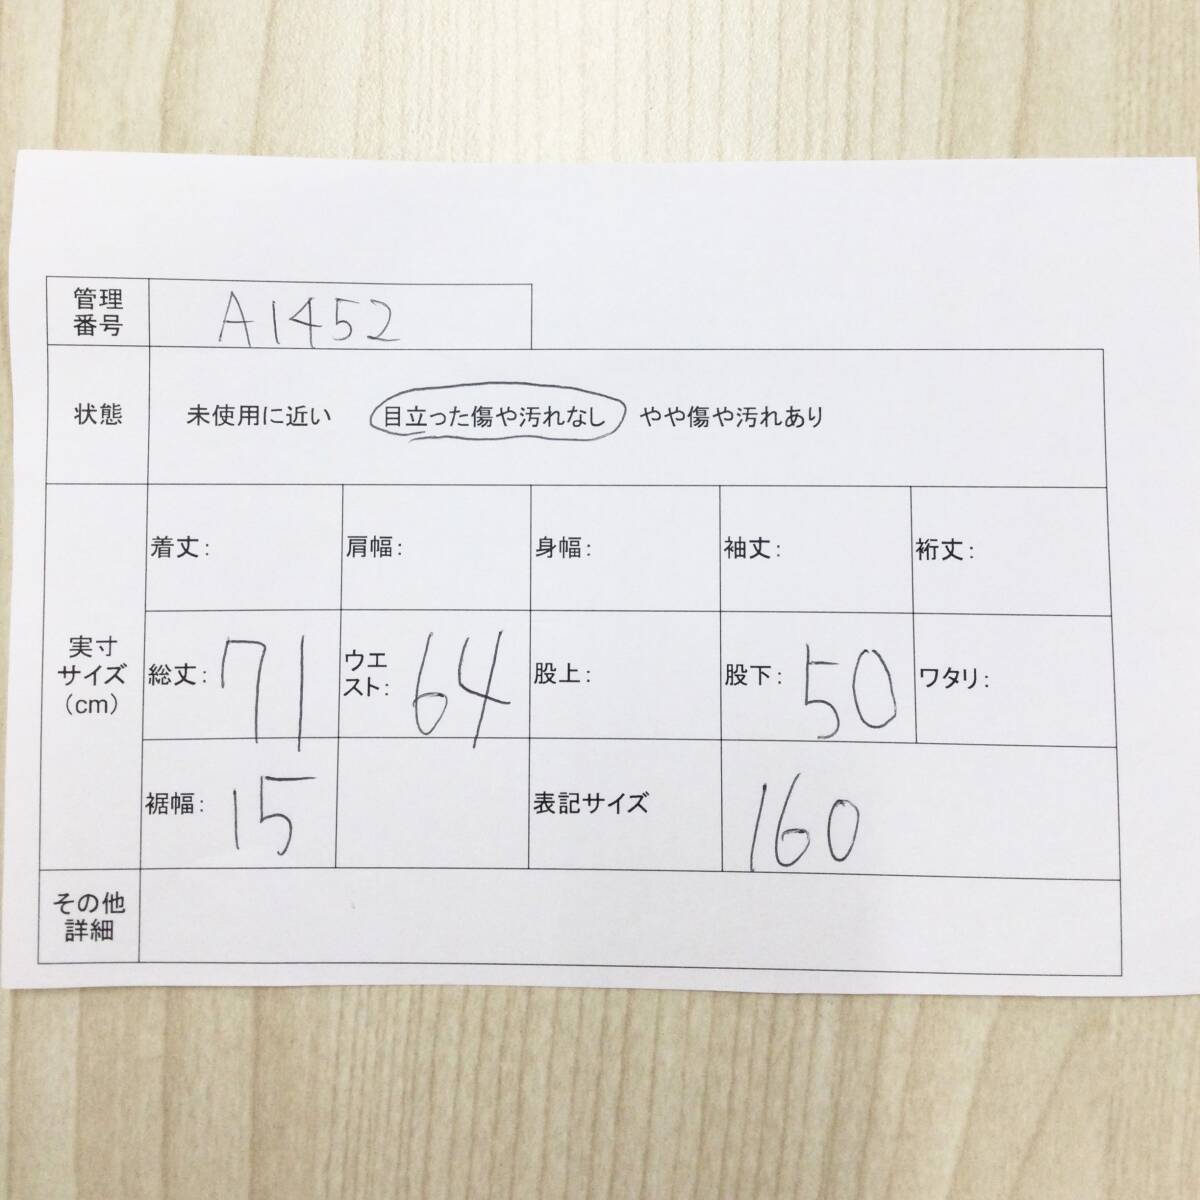 管理
番号
A1452
状態
未使用に近い 目立った傷や汚れなし やや傷や汚れあり
実寸
サイズ
(cm)
着丈: 肩幅: 身幅: 袖丈: 裄丈:
総丈: 71
ウエ
スト: 64
股上:
股下: 50
ワタリ:
裾幅: 15
表記サイズ
160
その他
詳細